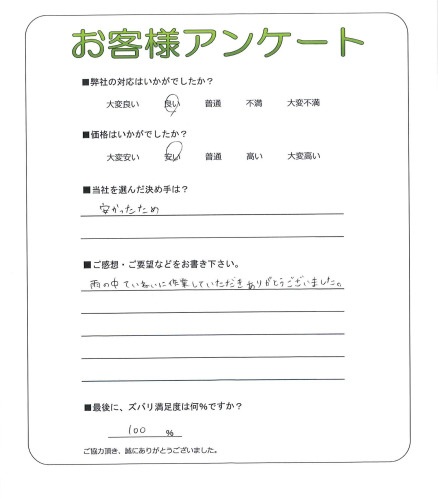 お客様アンケート
■弊社の対応はいかがでしたか？
大変良い 良い 普通 不満 大変不満
■価格はいかがでしたか？
大変安い 安い 普通 高い 大変高い
■当社を選んだ決め手は？
安かったため
■ご感想・ご要望などをお書き下さい。
雨の中ていねいに作業していただきありがとうございました。
■最後に、ズバリ満足度は何％ですか？
100 %
ご協力頂き、誠にありがとうございました。